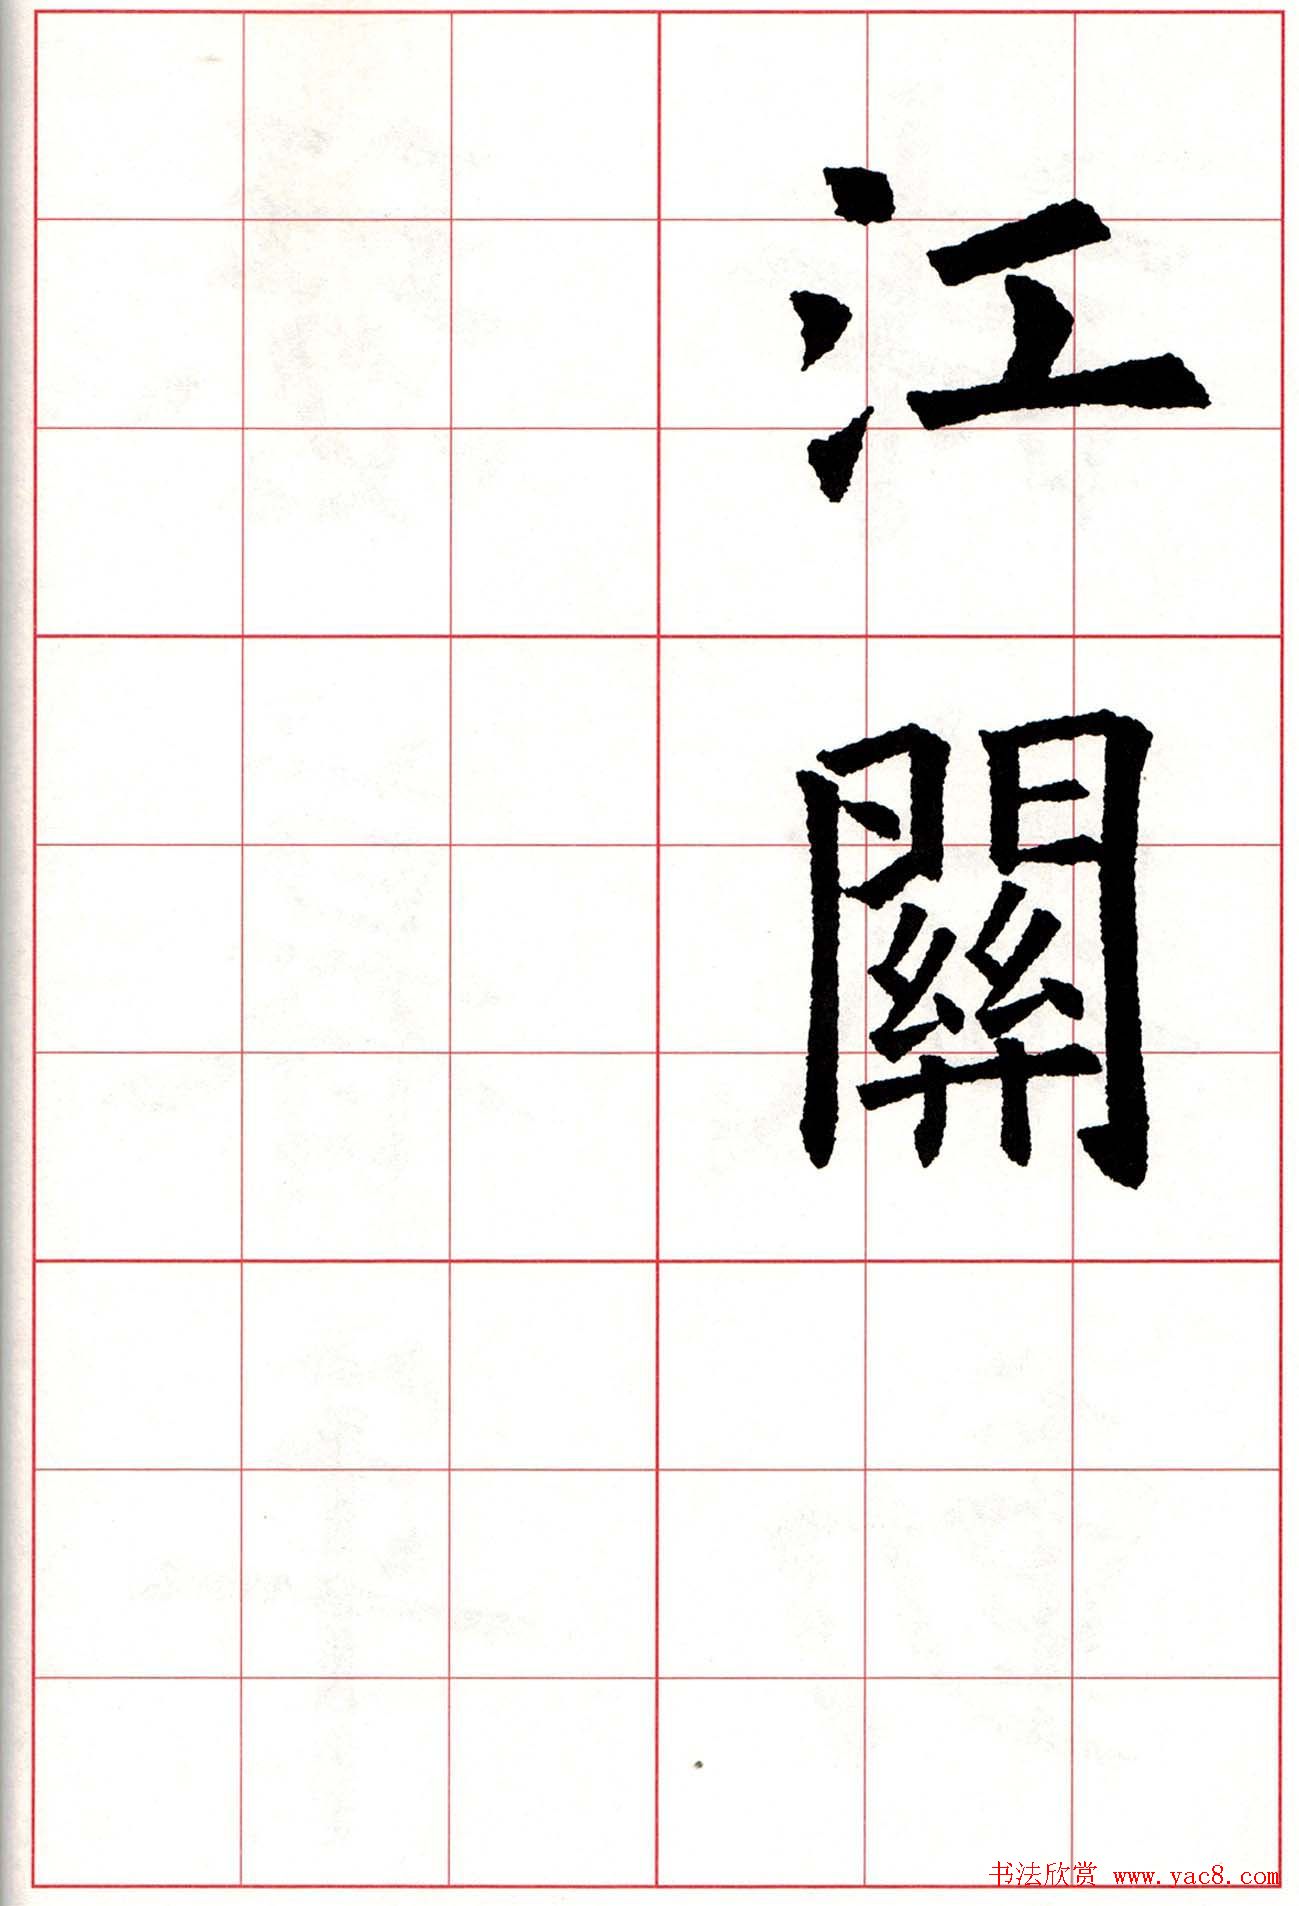 江關
书法欣赏 www.yac8.com